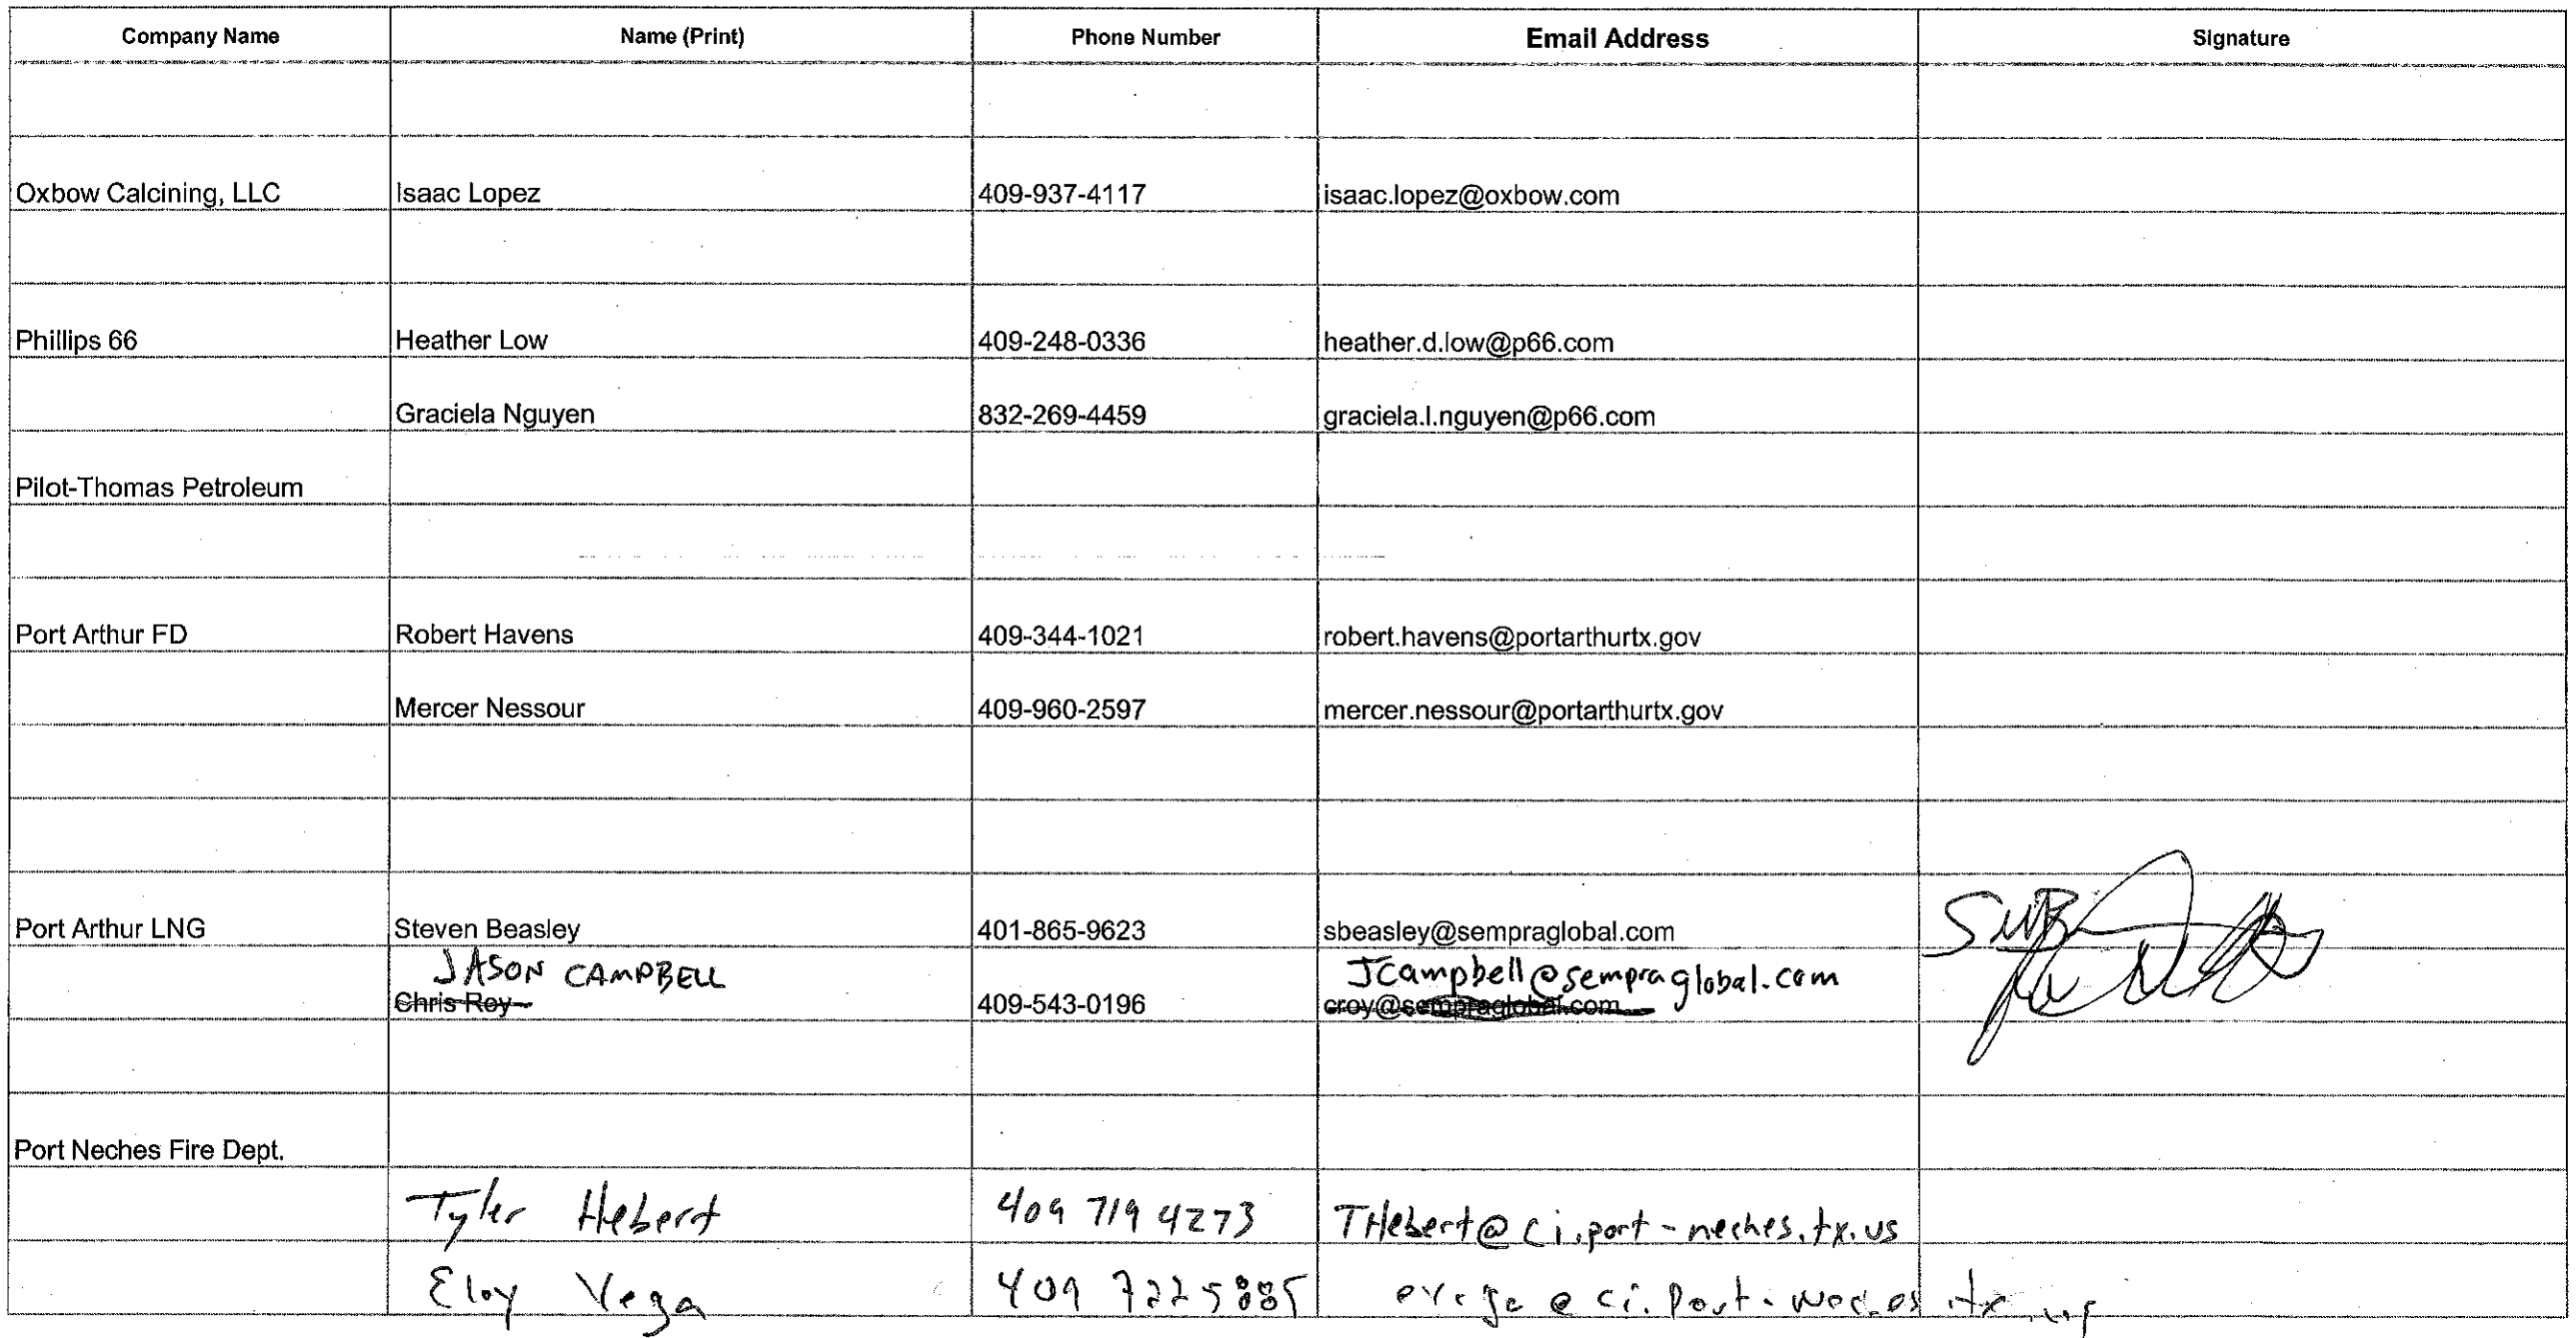 Company Name Name (Print) Phone Number Email Address Signature
Oxbow Calcining, LLC Isaac Lopez 409-937-4117 isaac.lopez@oxbow.com
Phillips 66 Heather Low 409-248-0336 heather.d.low@p66.com
Graciela Nguyen 832-269-4459 graciela.l.nguyen@p66.com
Pilot-Thomas Petroleum
Port Arthur FD Robert Havens 409-344-1021 robert.havens@portarthurtx.gov
Mercer Nessour 409-960-2597 mercer.nessour@portarthurtx.gov
Port Arthur LNG Steven Beasley 401-865-9623 sbeasley@sempraglobal.com
JASON CAMPBELL JCampbell@sempraglobal.com
Chris Roy 409-543-0196 croy@sempraglobal.com
Port Neches Fire Dept.
Tyler Hebert 409 719 4273 THebert@ci.port-neches.tx.us
Eloy Vega 409 7225885